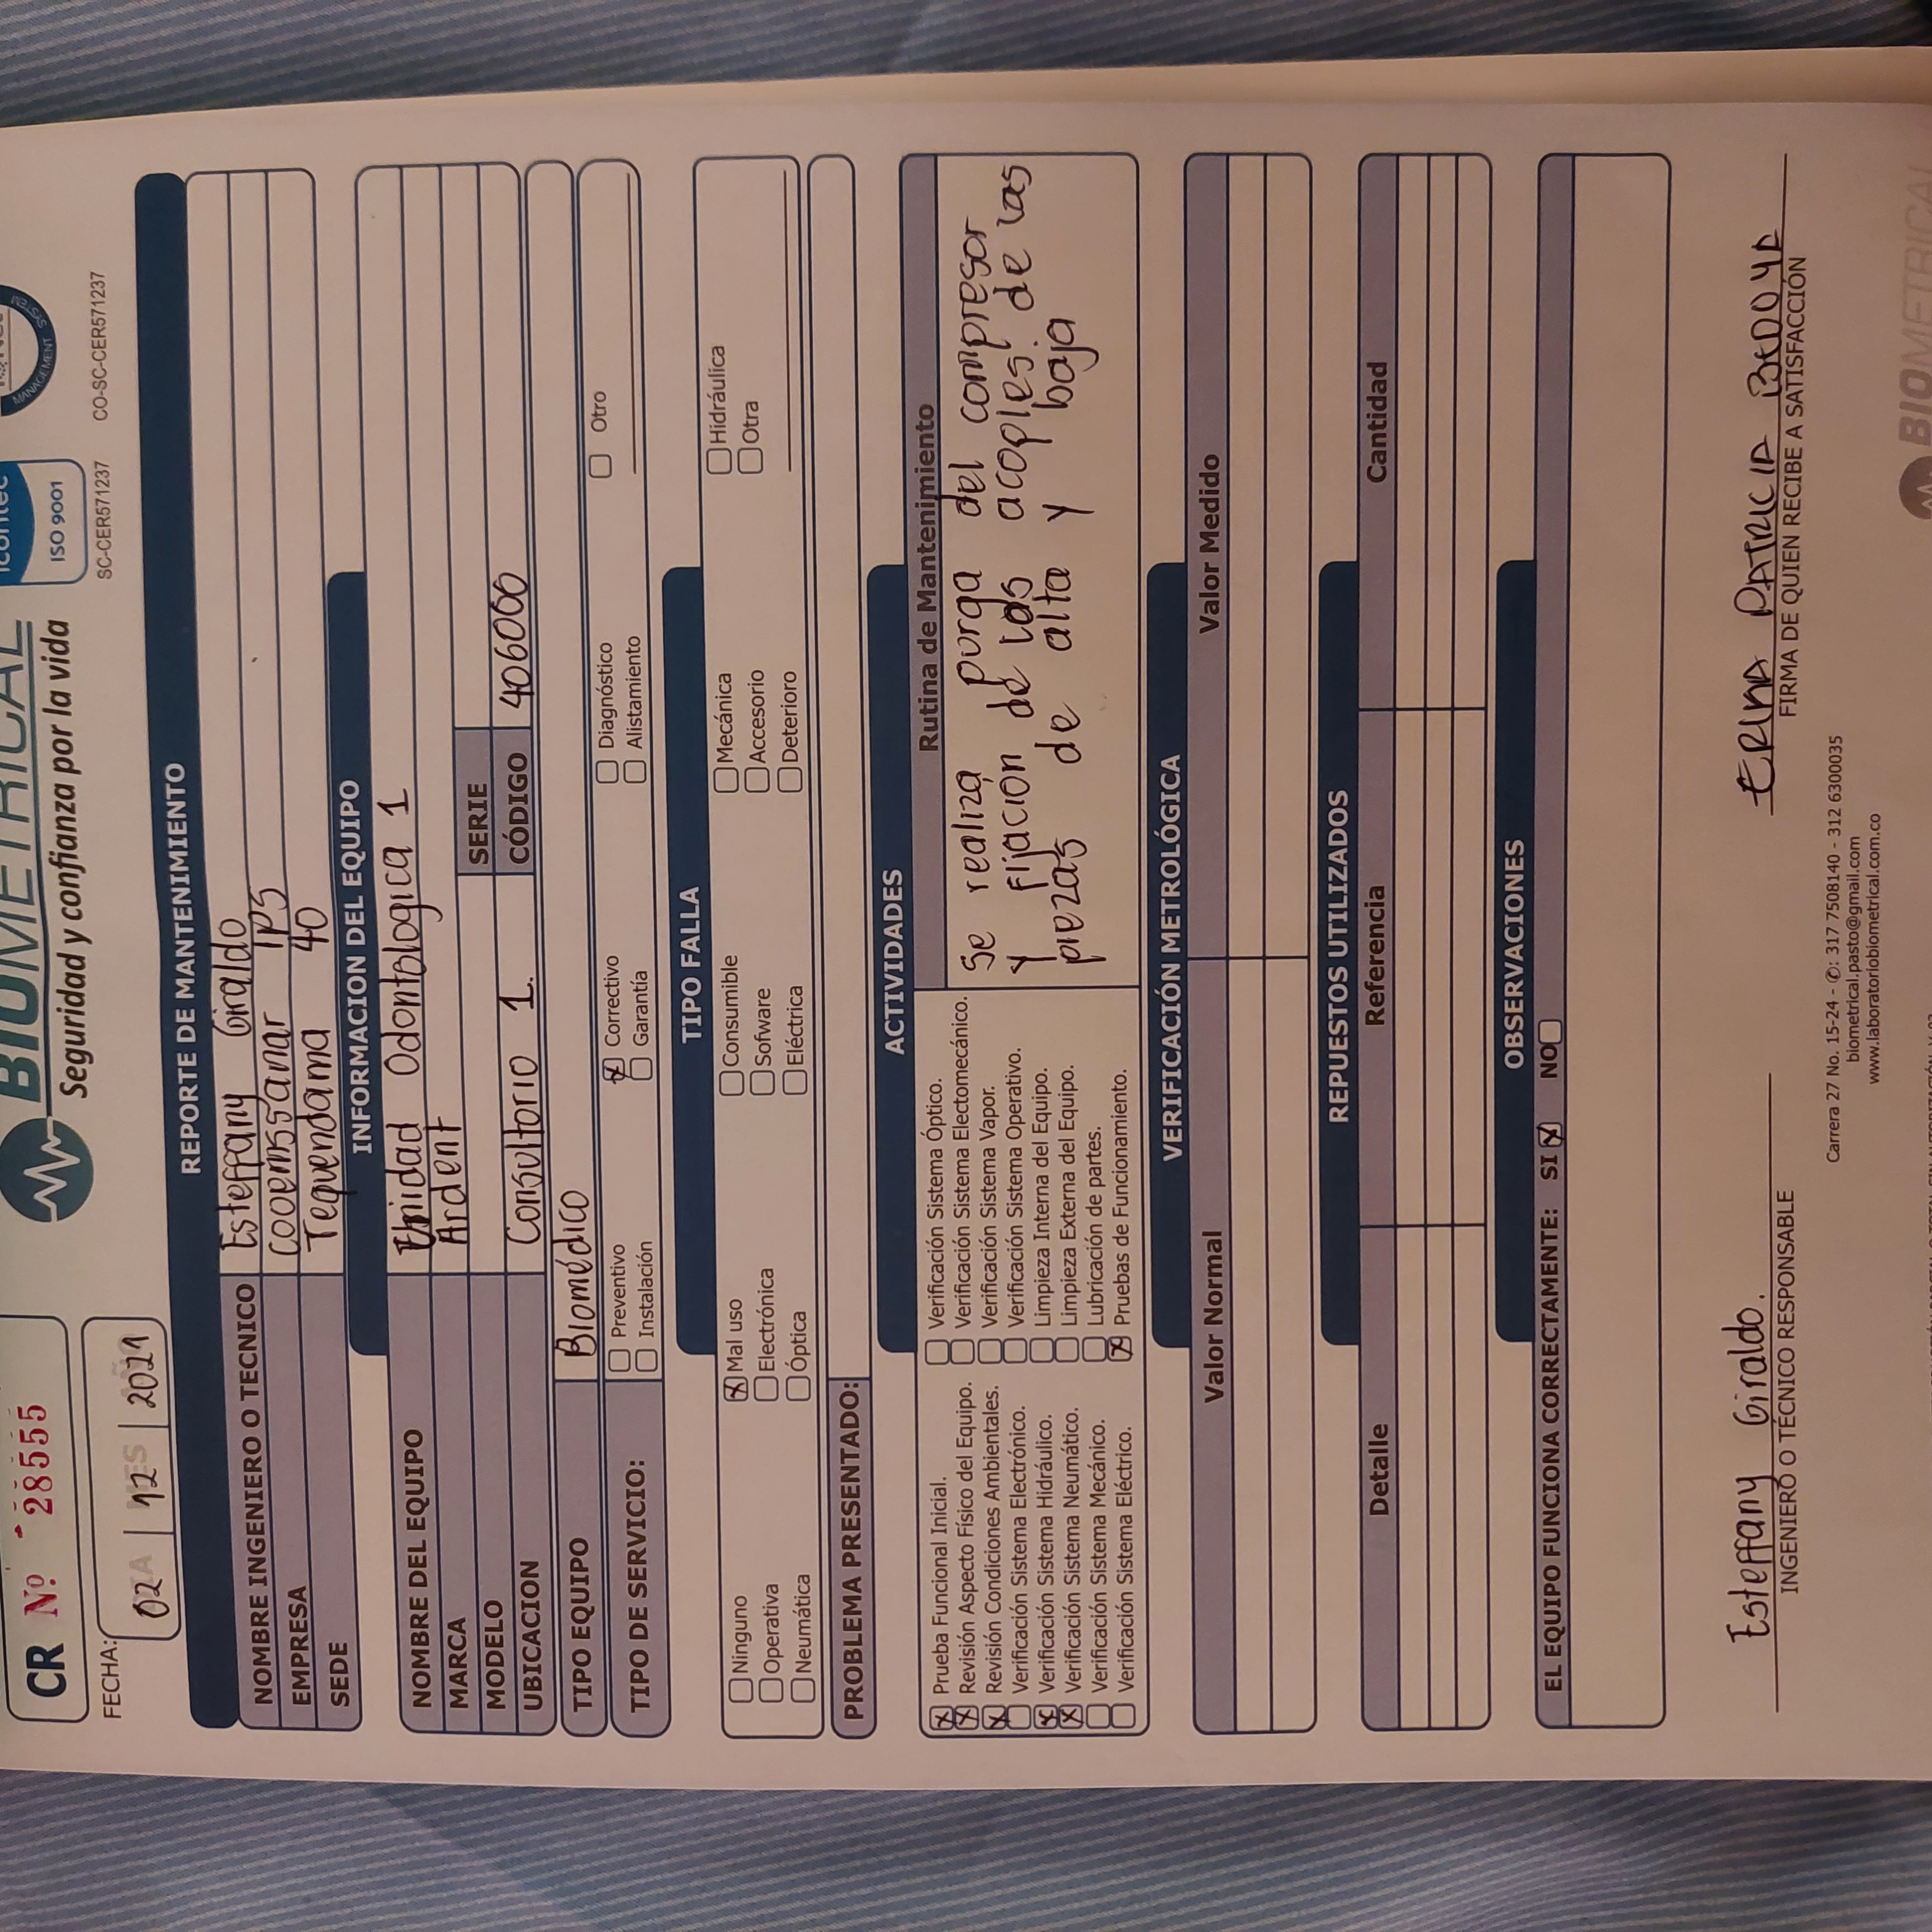 CR Nº 28555
BIOMETRICAL
Seguridad y confianza por la vida
icontec
ISO 9001
SC-CER571237
MANAGEMENT SYSTEM
CO-SC-CER571237
FECHA:
DIA MES AÑO
02 | 12 | 2021
REPORTE DE MANTENIMIENTO
NOMBRE INGENIERO O TECNICO Esteffany Giraldo
EMPRESA cooemssanar IPS
SEDE Tequendama 40
INFORMACION DEL EQUIPO
NOMBRE DEL EQUIPO Unidad Odontologica 1
MARCA Ardent
MODELO SERIE
UBICACION Consultorio 1. CÓDIGO 406000
TIPO EQUIPO Biomédico
TIPO DE SERVICIO:
Preventivo Correctivo Diagnóstico Otro
Instalación Garantía Alistamiento
TIPO FALLA
Ninguno Mal uso Consumible Mecánica Hidráulica
Operativa Electrónica Sofware Accesorio Otra
Neumática Óptica Eléctrica Deterioro
PROBLEMA PRESENTADO:
ACTIVIDADES
Prueba Funcional Inicial.
Revisión Aspecto Físico del Equipo.
Revisión Condiciones Ambientales.
Verificación Sistema Electrónico.
Verificación Sistema Hidráulico.
Verificación Sistema Neumático.
Verificación Sistema Mecánico.
Verificación Sistema Eléctrico.
Verificación Sistema Óptico.
Verificación Sistema Electomecánico.
Verificación Sistema Vapor.
Verificación Sistema Operativo.
Limpieza Interna del Equipo.
Limpieza Externa del Equipo.
Lubricación de partes.
Pruebas de Funcionamiento.
Rutina de Mantenimiento
Se realiza purga del compresor
y fijación de los acoples de las
piezas de alta y baja
VERIFICACIÓN METROLÓGICA
Valor Normal Valor Medido
REPUESTOS UTILIZADOS
Detalle Referencia Cantidad
OBSERVACIONES
EL EQUIPO FUNCIONA CORRECTAMENTE: SI NO
Esteffany Giraldo.
INGENIERO O TÉCNICO RESPONSABLE
ERIKA PATRICIA BEDOYA
FIRMA DE QUIEN RECIBE A SATISFACCIÓN
Carrera 27 No. 15-24 - ✆: 317 7508140 - 312 6300035
biometrical.pasto@gmail.com
www.laboratoriobiometrical.com.co
BIOMETRICAL